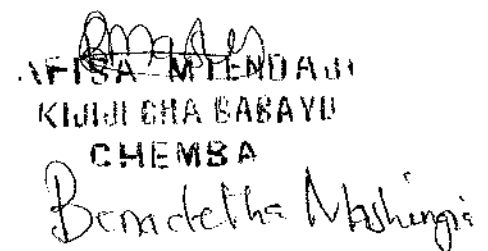 AFISA MTENDAJI
KIJIJI CHA BABAYU
CHEMBA
Benadetha Mashingia